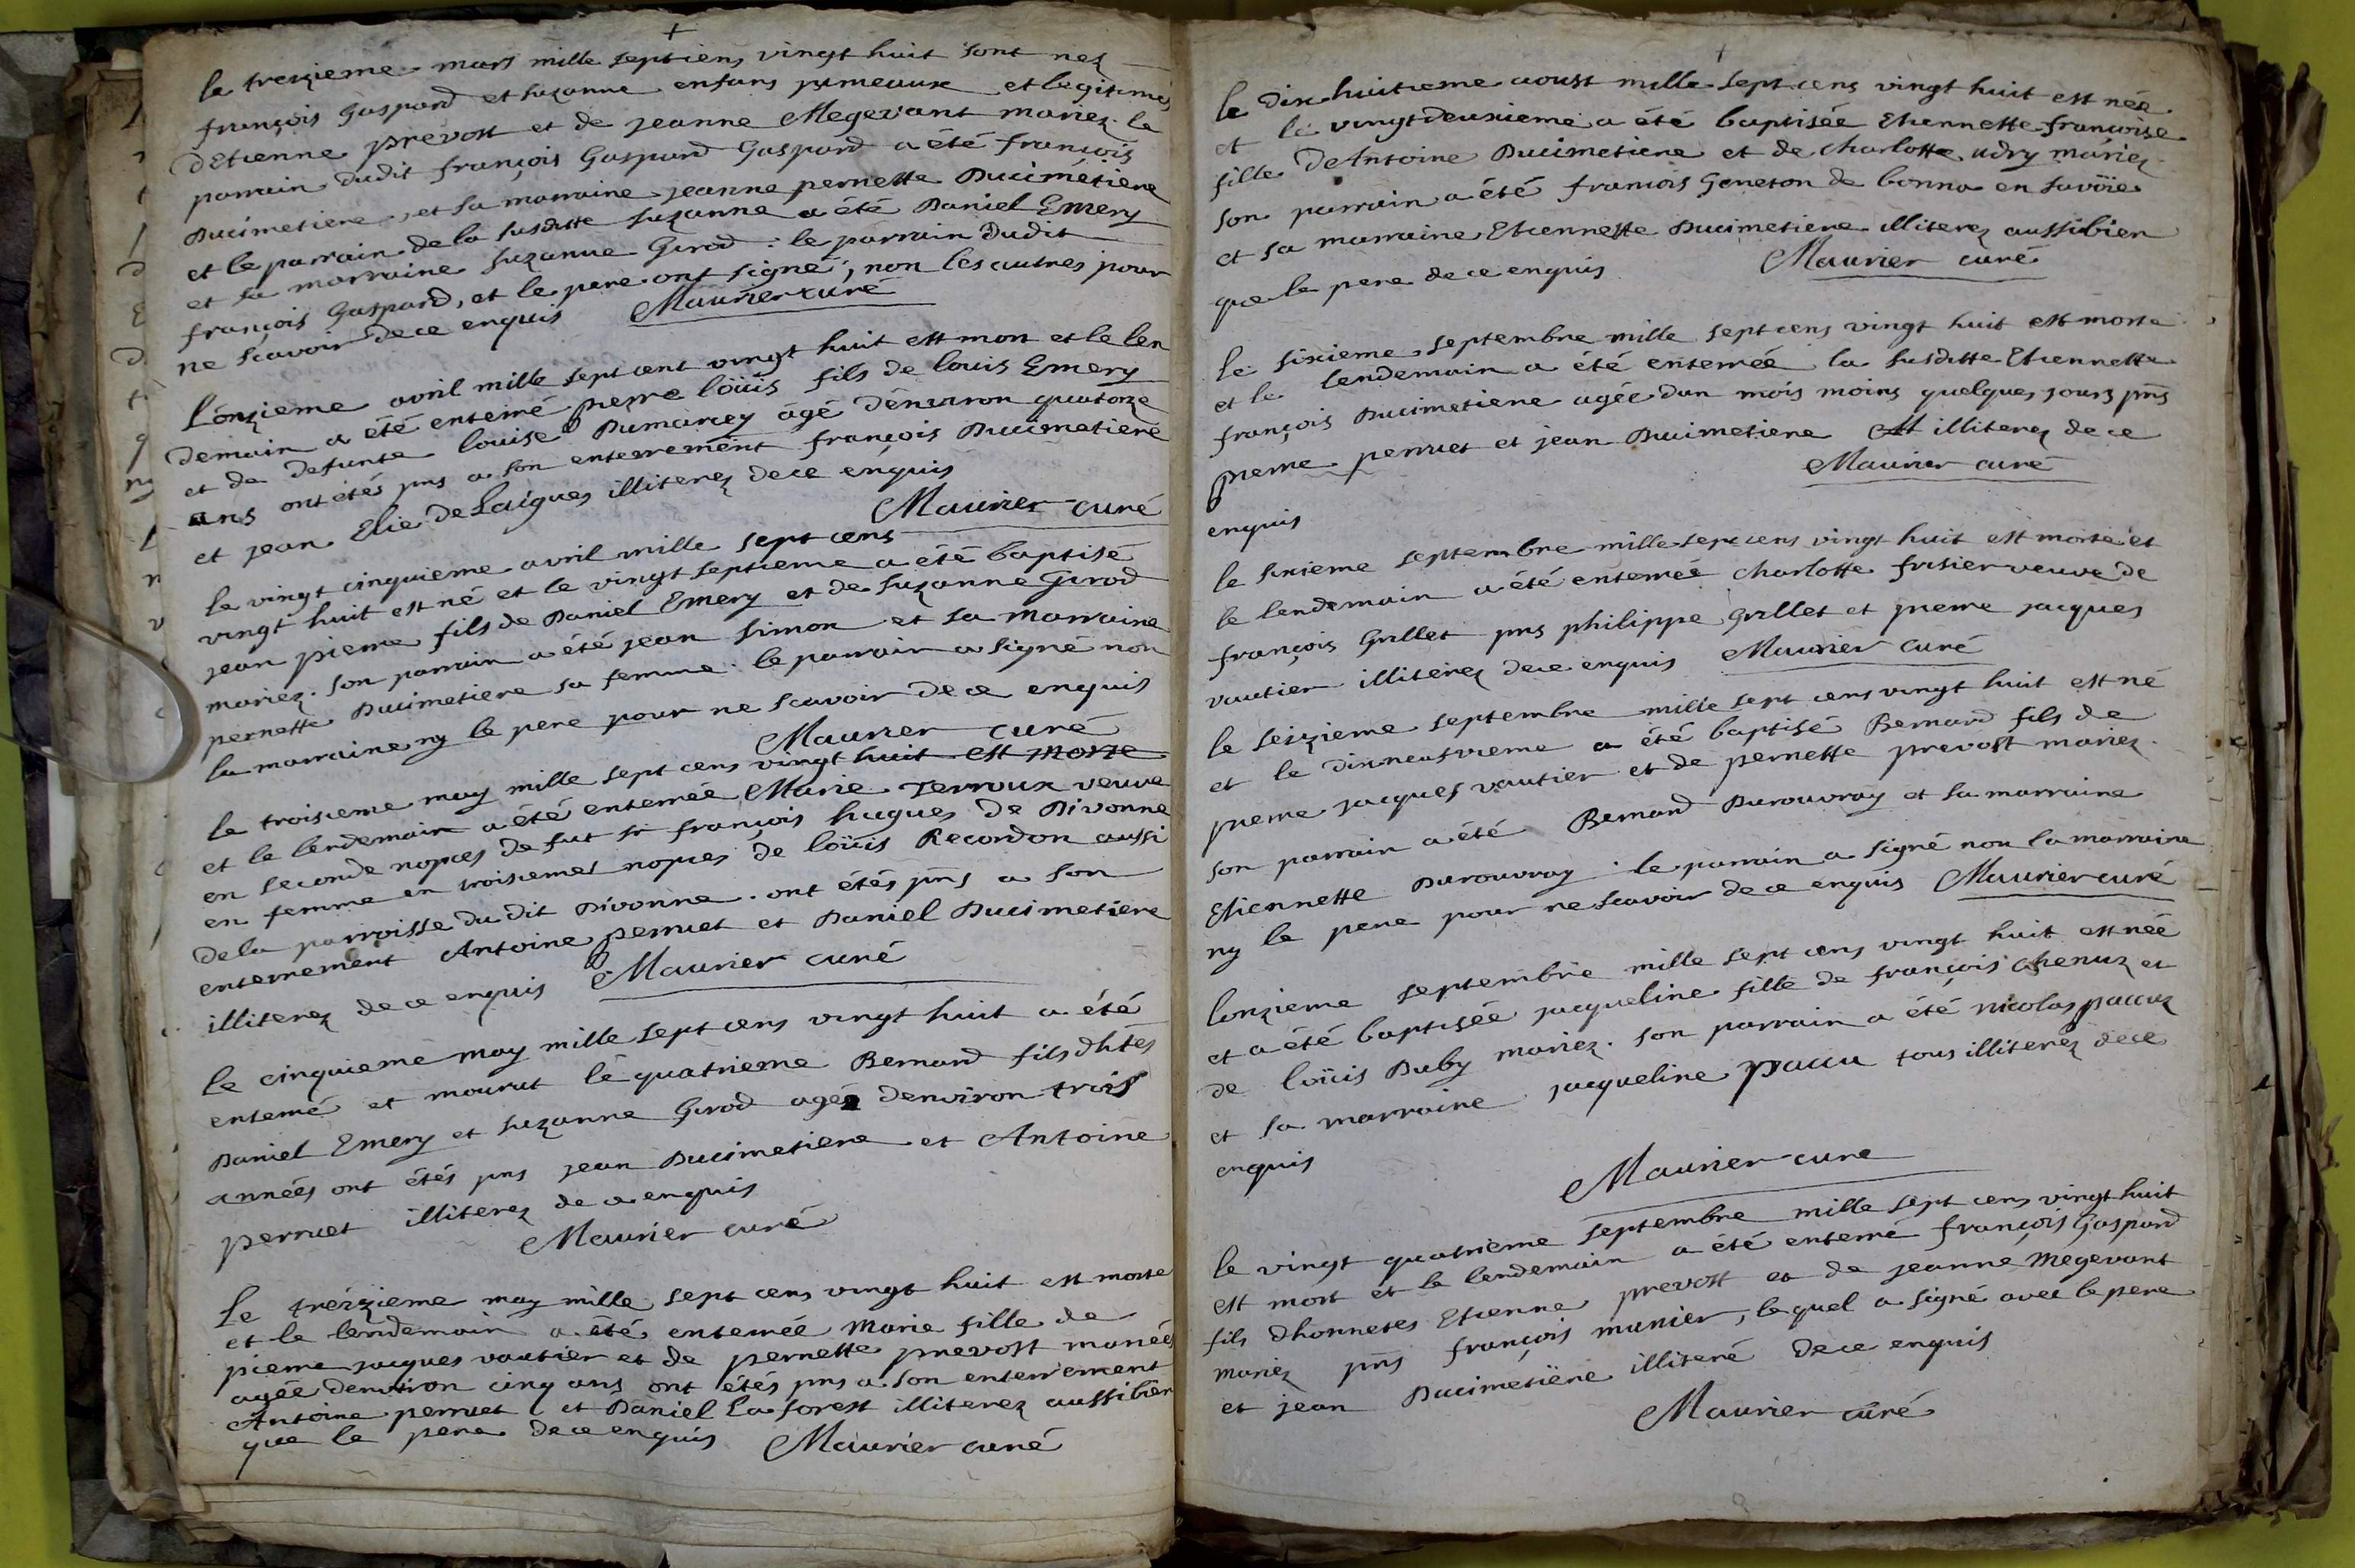 le treizieme mars mille sept cens vingt huit sont nez
françois Gaspard et suzanne enfans jumeaux et legitimes
dEtienne prevost et de jeanne Megevant mariez. le
parrain dudit françois Gaspard Gaspard a été françois
Ducimetiere, et sa marraine jeanne pernette Ducimetiere
et le parrain de la susditte suzanne a été Daniel Emery
et sa marraine suzanne Girod : le parrain dudit
françois Gaspard, et le pere ont signé, non les autres pour
ne scavoir de ce enquis Maurier curé
lónzieme avril mille sept cent vingt huit est mort et le len
demain a été enterré pierre loüis fils de louis Emery
et de defunte louise Dumarcey âgé dénviron quatorze
ans ont étés pns a son enterrement françois Ducimetiere
et jean Elie De Laigues illiterez de ce enquis
Maurier curé
le vingt cinquieme avril mille sept cens
vingt huit est né et le vingt septieme a été baptisé
jean pierre fils de Daniel Emery et de suzanne Girod
mariez. son parrain a été jean simon et sa marraine
pernette Ducimetiere sa femme. le parrain a signé non
la marraine ny le pere pour ne scavoir de ce enquis
Maurier curé
le troisieme may mille sept cens vingt huit est morte
et le lendemain a été enterrée Marie Terroux veuve
en seconde nopces de fut sr françois hugues de Divonne
en femme en troisiemes nopces de loüis Recordon aussi
de la parroisse du dit Divonne. ont étés pns a son
enterrement Antoine perruet et Daniel Ducimetiere
illiterez de ce enquis Maurier curé
le cinquieme may mille sept cens vingt huit a été
enterré et mourut le quatrieme Bernard fils dhtes
Daniel Emery et suzanne Girod agé denviron trois
années ont étés pns jean Ducimetiere et Antoine
perruet illiterez de ce enquis
Maurier curé
Le treizieme may mille sept cens vingt huit est morte
et le lendemain a été enterrée Marie fille de
pierre jacques vautier et de pernette prevost mariés
agée denviron cinq ans ont étés pns a son enterrement
Antoine perruet et Daniel La forest illiterez aussibien
que le pere de ce enquis Maurier curé
le Dixhuitieme aoust mille sept cens vingt huit est née
et le vingtdeuxieme a été baptisée Etiennette françoise
fille DeAntoine Ducimetiere et de charlotte udry máriez
son parrain a été francois Geneton de bonna en savöie
et sa marraine Etiennette Ducimetiere illiterez aussibien
que le pere de ce enquis Maurier curé
le sixieme septembre mille sept cens vingt huit est morte
et le lendemain a été enterrée la susditte Etiennette
françois Ducimetiere agée dun mois moins quelques jours pns
pierre perruet et jean Ducimetiere illiterez de ce
enquis Maurier curé
le sixieme septembre mille sept cens vingt huit est morte et
le lendemain a été enterrée charlotte frisier veuve de
françois Grillet pns philippe Grillet et pierre jacques
vautier illiterez de ce enquis Maurier curé
le seizieme septembre mille sept cens vingt huit est né
et le dixneufvieme a été baptisé Bernard fils de
pierre jacques vautier et de pernette prevost mariez.
son parrain a été Bernard Durouvray et sa marraine
Etiennette Durouvray. le parrain a signé non la marraine
ny le pere pour ne scavoir de ce enquis Maurier curé
lonzieme septembre mille sept cens vingt huit est née
et a été baptisée jacqueline fille de françois chenuz et
de loüis Duby mariez. son parrain a été nicolas paccuz
et sa marraine jacqueline paccu tous illiterez de ce
enquis
Maurier curé
le vingt quatrieme septembre mille sept cens vingt huit
est mort et le lendemain a été enterré françois Gaspard
fils dhonnetes Etienne prevost et de jeanne Megevant
mariez pns françois munier, lequel a signé avec le pere
et jean Ducimetiere illiteré de ce enquis
Maurier curé